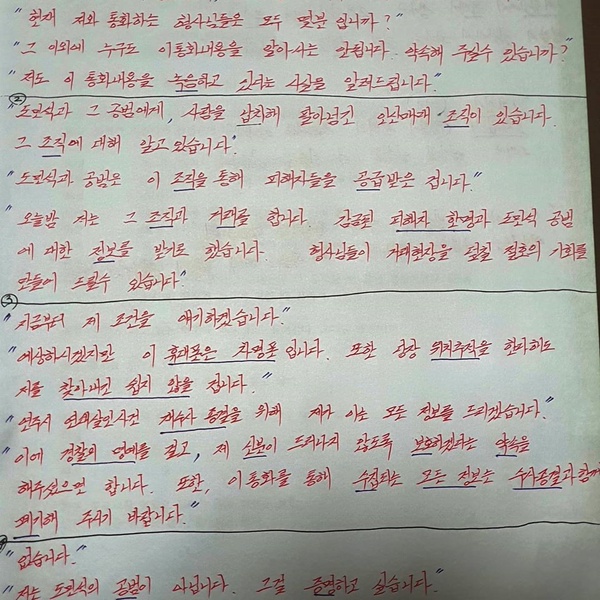 "현재 저와 통화하는 형사님들은 모두 몇분 입니까?"
"그 이외에 누구도 이통화내용을 알아서는 안됩니다. 약속해 주실수 있습니까?"
"저도 이 통화내용을 녹음하고 있다는 사실을 알려드립니다."
② "도민식과 그 공범에게, 사람을 납치해 팔아넘긴 인신매매 조직이 있습니다.
그 조직에 대해 알고 있습니다."
"도민식과 공범은 이 조직을 통해 피해자들을 공급받은 겁니다."
"오늘밤 저는 그 조직과 거래를 합니다. 감금된 피해자 한명과 도민식 공범
에 대한 정보를 받기로 했습니다. 형사님들이 거래현장을 덮칠 절호의 기회를
만들어 드릴수 있습니다"
③ "지금부터 제 조건을 얘기하겠습니다."
"예상하시겠지만 이 휴대폰은 차명폰입니다. 또한 당장 위치추적을 한다해도
저를 찾아내긴 쉽지 않을 겁니다."
"연주시 연쇄살인사건 재수사 종결을 위해 제가 아는 모든 정보를 드리겠습니다."
"이에 경찰의 명예를 걸고, 제 신분이 드러나지 않도록 보호하겠다는 약속을
해주셨으면 합니다. 또한, 이 통화를 통해 수집되는 모든 정보는 수사종결과 함께
폐기해 주시기 바랍니다."
"없습니다."
"저는 도민식의 공범이 아닙니다. 그걸 증명하고 싶습니다."